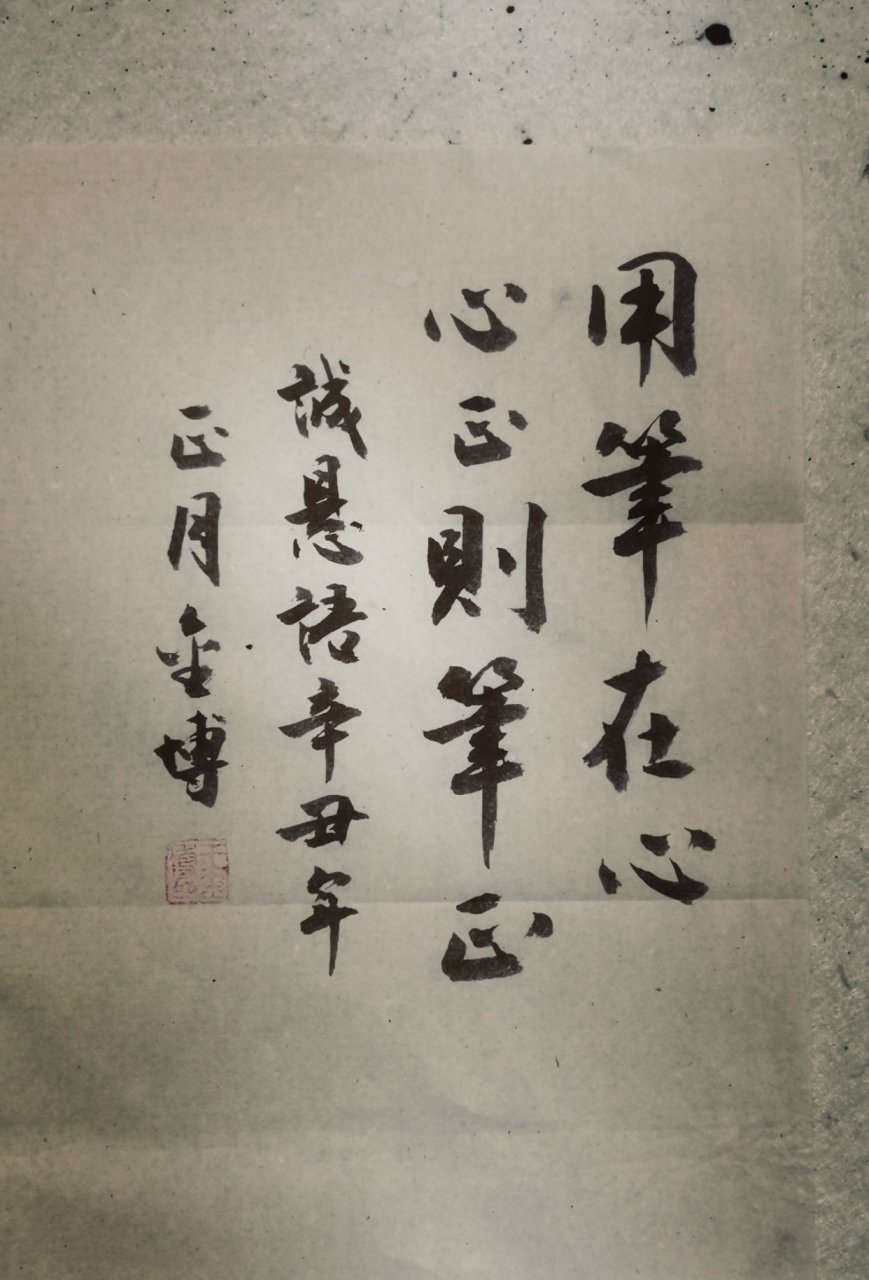 用筆在心
心正則筆正
誠懸語辛丑年
正月金博